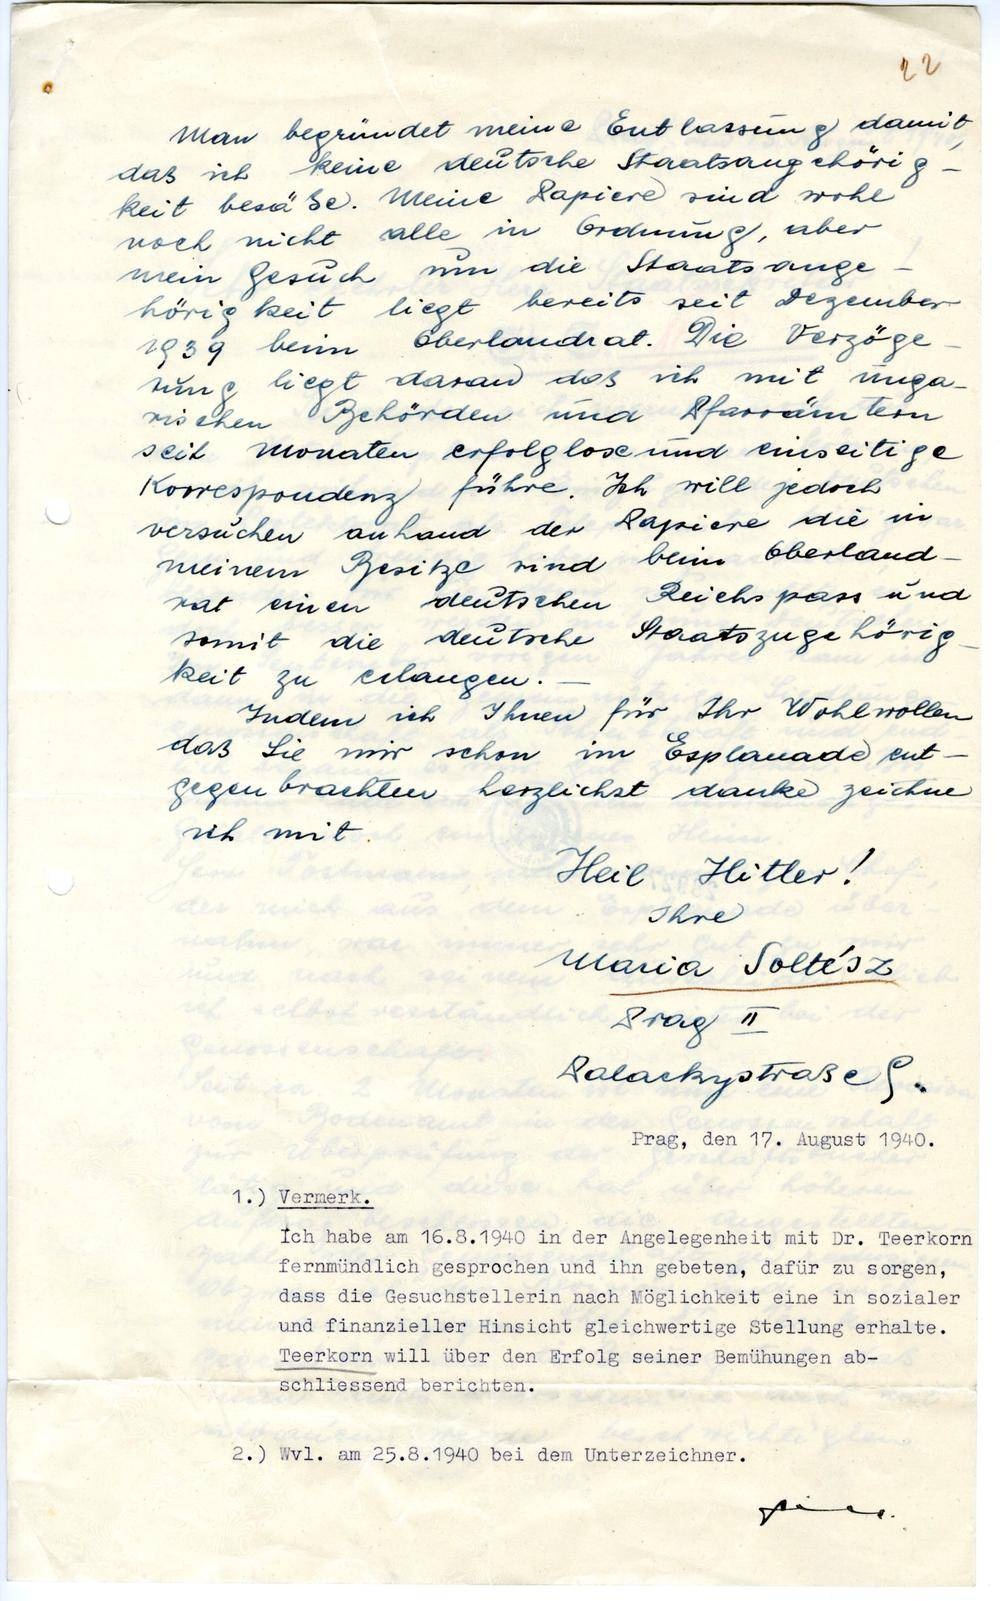 22
Man begründet meine Entlassung damit,
daß ich keine deutsche Staatsangehörig-
keit besäße. Meine Papiere sind wohl
noch nicht alle in Ordnung, aber
mein Gesuch um die Staatsange-
hörigkeit liegt bereits seit Dezember
1939 beim Oberlandrat. Die Verzöge-
rung liegt daran das ich mit unga-
rischen Behörden und Pfarrämtern
seit Monaten erfolglose und einseitige
Korrespondenz führe. Ich will jedoch
versuchen anhand der Papiere die in
meinem Besitze sind beim Oberland-
rat einen deutschen Reichspass und
somit die deutsche Staatszugehörig-
keit zu erlangen. —
Indem ich Ihnen für Ihr Wohlwollen
daß Sie mir schon im Esplanade ent-
gegenbrachten herzlichst danke zeichne
ich mit
Heil Hitler!
Ihre
Maria Soltész
Prag II
Palackystraße 9.
Prag, den 17. August 1940.
1.) Vermerk.
Ich habe am 16.8.1940 in der Angelegenheit mit Dr. Teerkorn
fernmündlich gesprochen und ihn gebeten, dafür zu sorgen,
dass die Gesuchstellerin nach Möglichkeit eine in sozialer
und finanzieller Hinsicht gleichwertige Stellung erhalte.
Teerkorn will über den Erfolg seiner Bemühungen ab-
schliessend berichten.
2.) Wvl. am 25.8.1940 bei dem Unterzeichner.